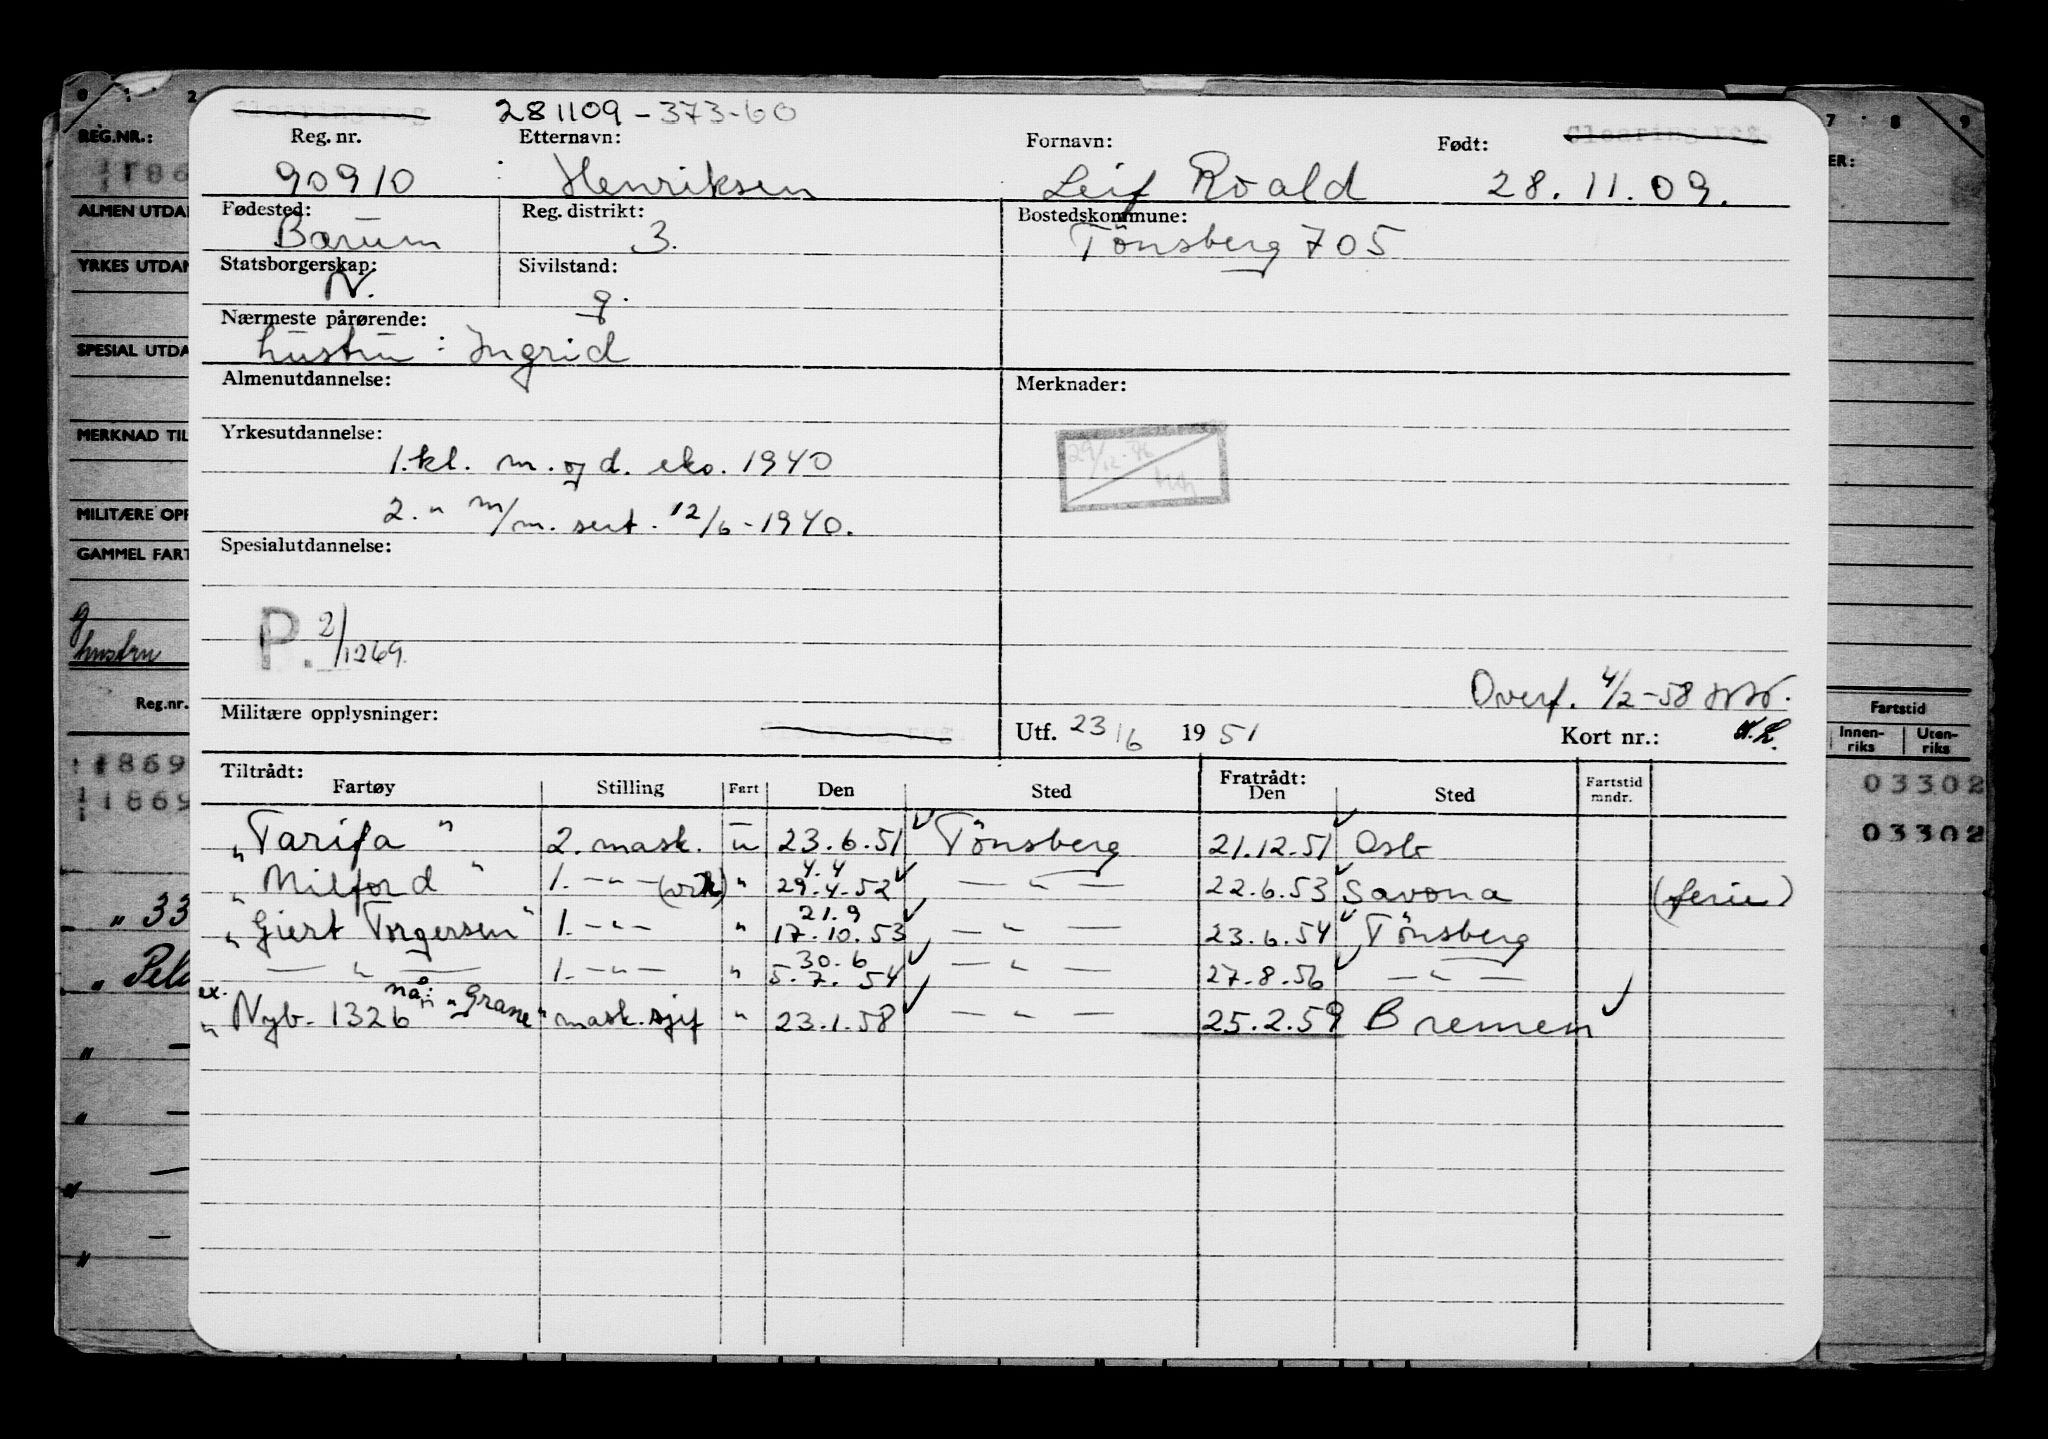 281109-373-60
Reg. nr. Etternavn: Fornavn: Født:
90910 Henriksen Leif Roald 28.11.09.
Fødested: Reg. distrikt: Bostedskommune:
Bærum 3. Tönsberg 705
Statsborgerskap: Sivilstand:
N. g.
Nærmeste pårørende:
hustru: Ingrid
Almenutdannelse: Merknader:
Yrkesutdannelse:
1.kl. m. og d. eks. 1940
29/12-76
2. " m/m. sert. 12/6-1940.
Spesialutdannelse:
P. 2/1269.
Overf. 4/2-58
Militære opplysninger: Utf. 23/6 1951 Kort nr.:
Tiltrådt: Fratrådt:
Fartøy Stilling Fart Den Sted Den Sted Fartstid mndr.
"Tarifa" 2. mask. u 23.6.51 Tönsberg 21.12.51 Oslo
4.4
"Milford" 1. -"- (vik) " 29.4.52 -"- 22.6.53 Savona (ferie)
21.9
"Giert Torgersen" 1. -"- " 17.10.53 -"- 23.6.54 Tönsberg
30.6
-"- 1. -"- " 5.7.54 -"- 27.8.56 -"-
ex. nå:
"Nyb. 1326 "Grane" mask.sjef " 23.1.58 -"- 25.2.59 Bremen
0 1 2
REG.NR.:
1186
ALMEN UTDA
YRKES UTDAN
SPESIAL UTDA
MERKNAD TIL
MILITÆRE OPP
GAMMEL FART
g
hustru
Reg.nr.
11869
11869
" 33
" Pel
7 8 9
ER:
Fartstid
Innen-riks Uten-riks
03302
03302